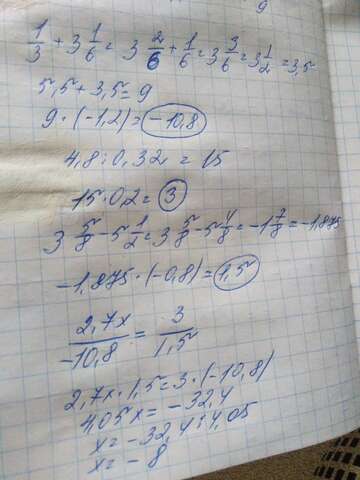 9
1/3 + 3 1/6 = 3 2/6 + 1/6 = 3 3/6 = 3 1/2 = 3,5
5,5 + 3,5 = 9
9 · (-1,2) = -10,8
4,8 : 0,32 = 15
15 · 0,2 = 3
3 5/8 - 5 1/2 = 3 5/8 - 5 4/8 = -1 7/8 = -1,875
-1,875 · (-0,8) = 1,5
2,7x / -10,8 = 3 / 1,5
2,7x · 1,5 = 3 · (-10,8)
4,05x = -32,4
x = -32,4 : 4,05
x = -8